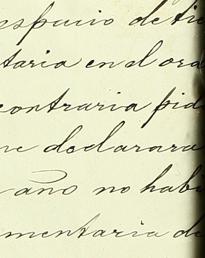 espacio de tie
taria en el ord
contraria pid
ne declarara
ano no habi
mentaria de